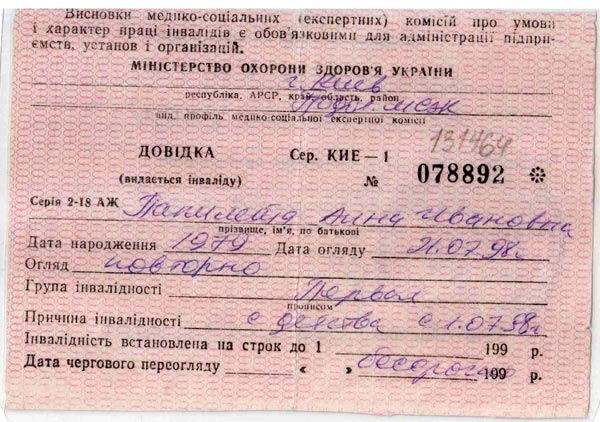 Висновки медико-соціальних (експертних) комісій про умови
і характер праці інвалідів є обов'язковими для адміністрації підпри-
ємств, установ і організацій.
МІНІСТЕРСТВО ОХОРОНИ ЗДОРОВ'Я УКРАЇНИ
г. Киев
республіка, АРСР, край, область, район
МСЭК
вид, профіль медико-соціальної експертної комісії
131464
ДОВІДКА Сер. КИЕ — 1
(видається інваліду) № 078892 ❊
Серія 2-18 АЖ Анна Ивановна
прізвище, ім'я, по батькові
Дата народження 1979 Дата огляду 21.07.98г
Огляд повторно
Група інвалідності Первая
прописом
Причина інвалідності с детства с 1.07.98г
Інвалідність встановлена на строк до 1 199 р.
Дата чергового переогляду « » бессрочно 199 р.